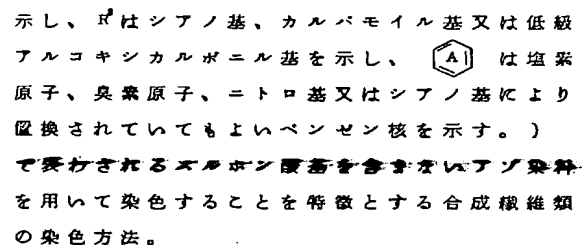 示し、R³はシアノ基、カルバモイル基又は低級
アルコキシカルボニル基を示し、 A は塩素
原子、臭素原子、ニトロ基又はシアノ基により
置換されていてもよいベンゼン核を示す。)
で表わされるスルホン酸基を含まないアゾ染料
を用いて染色することを特徴とする合成繊維類
の染色方法。